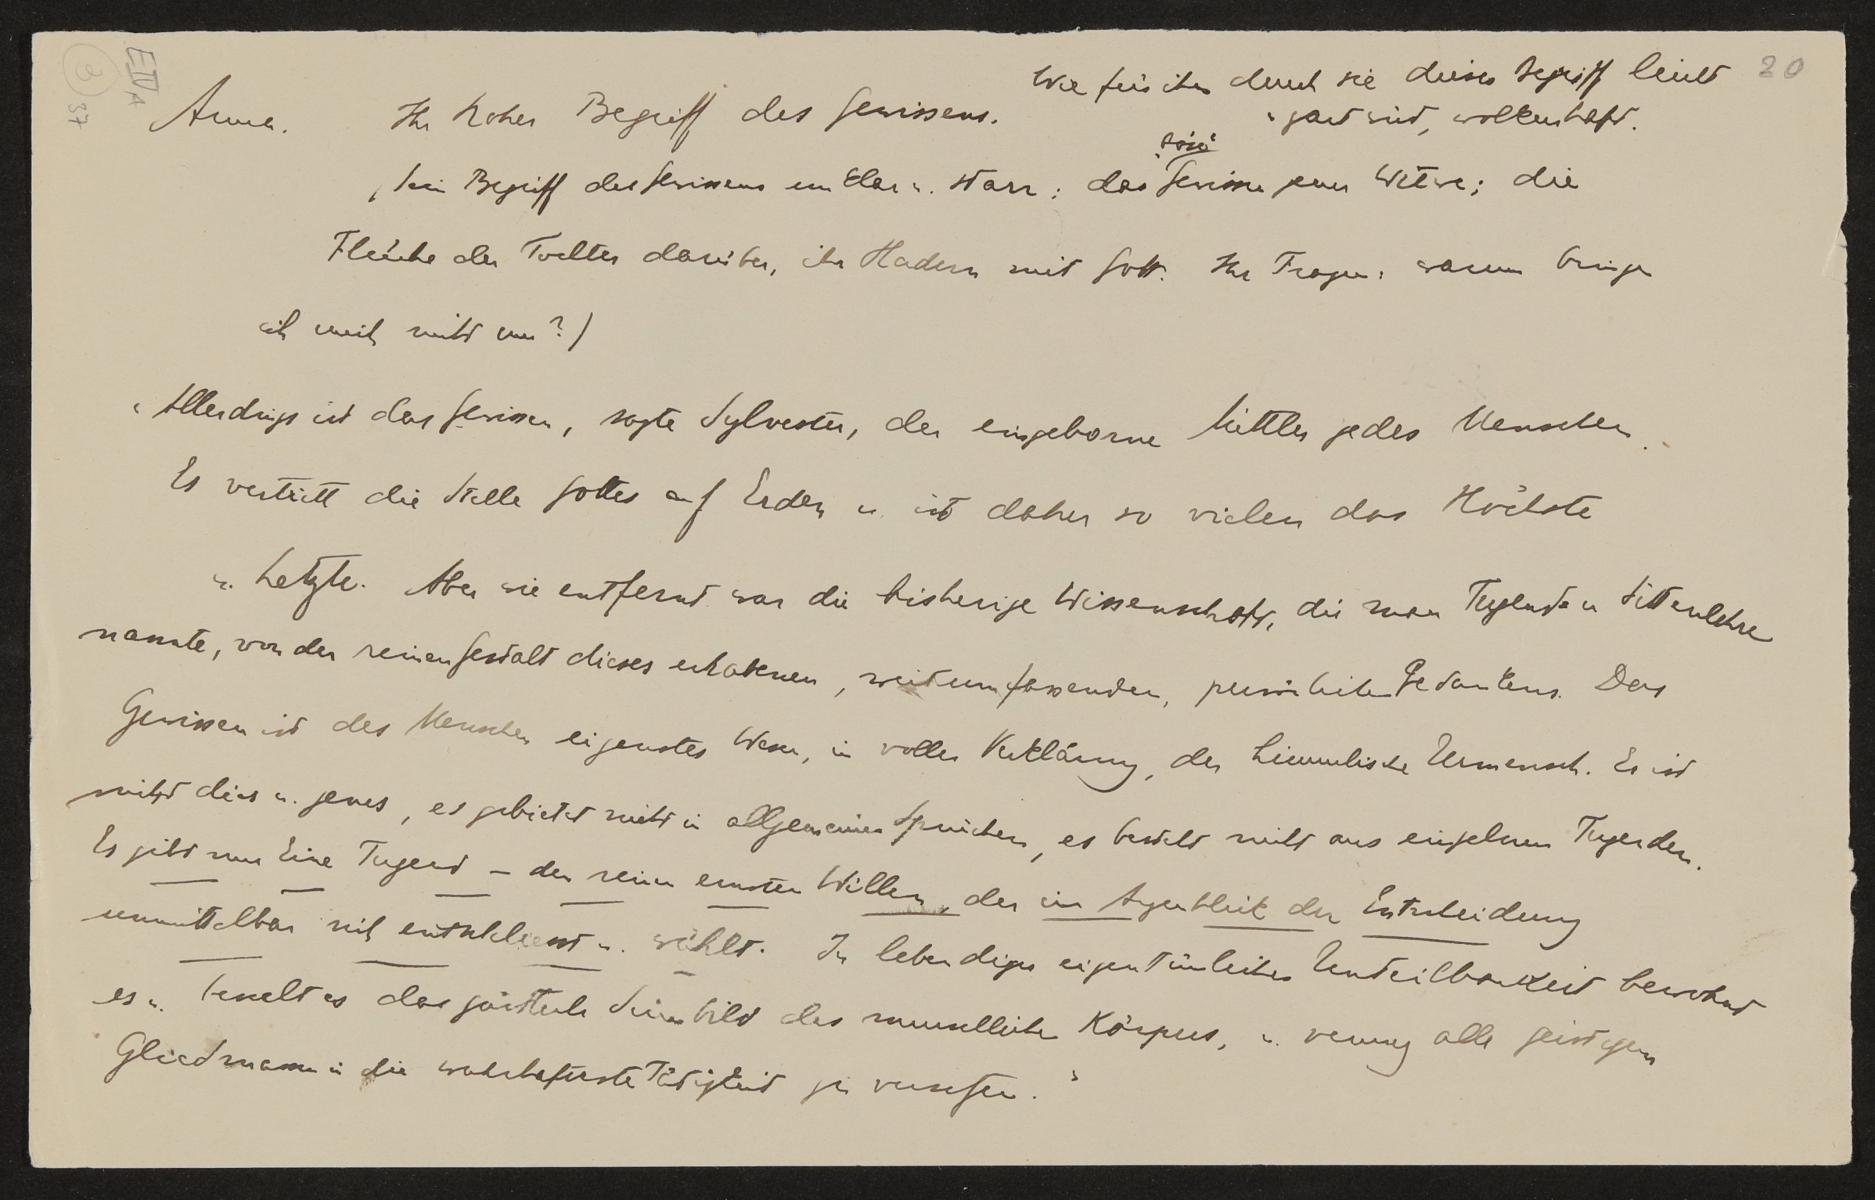 20
E IV A
37
Anna. Ihr hoher Begriff des Gewissens. Wie für ihn durch sie dieser Begriff leicht
u. zart wird, wolkenhaft.
"böse"
(Sein Begriff des Gewissens ein klar u. starr: das Gewissen jener Witwe; die
Flüche der Tochter darüber, ihr Hadern mit Gott. Ihr Fragen: warum bringe
ich mich nicht um?)
"Allerdings ist das Gewissen, sagte Sylvester, der eingeborne Mittler jedes Menschen.
Es vertritt die Stelle Gottes auf Erden u. ist daher so vielen das Höchste
u. Letzte. Aber wie entfernt war die bisherige Wissenschaft, die man Tugend u Sittenlehre
nannte, von der reinen Gestalt dieses erhabenen, weitumfassenden, persönlichen Gedankens. Das
Gewissen ist des Menschen eigenstes Wesen, in voller Verklärung, der himmlische Urmensch. Es ist
nicht dies u. jenes, es gebietet nicht in allgemeinen Sprüchen, es besteht nicht aus einzelnen Tugenden.
Es gibt nur Eine Tugend – den reinen ernsten Willen, der im Augenblick der Entscheidung
unmittelbar sich entschliesst u. wählt. In lebendiger eigentümlicher Unteilbarkeit bewohnt
es u. beseelt es das zärtliche Sinnbild des menschlichen Körpers, u. vermag alle geistigen
Gliedmassen in die wahrhafteste Tätigkeit zu versetzen."